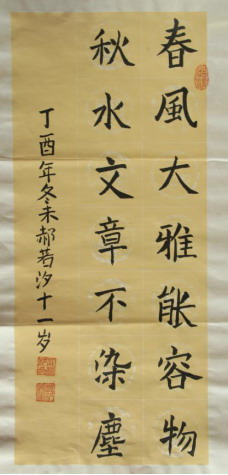 春風大雅能容物
秋水文章不染塵
丁酉年冬末郝若汐十一岁